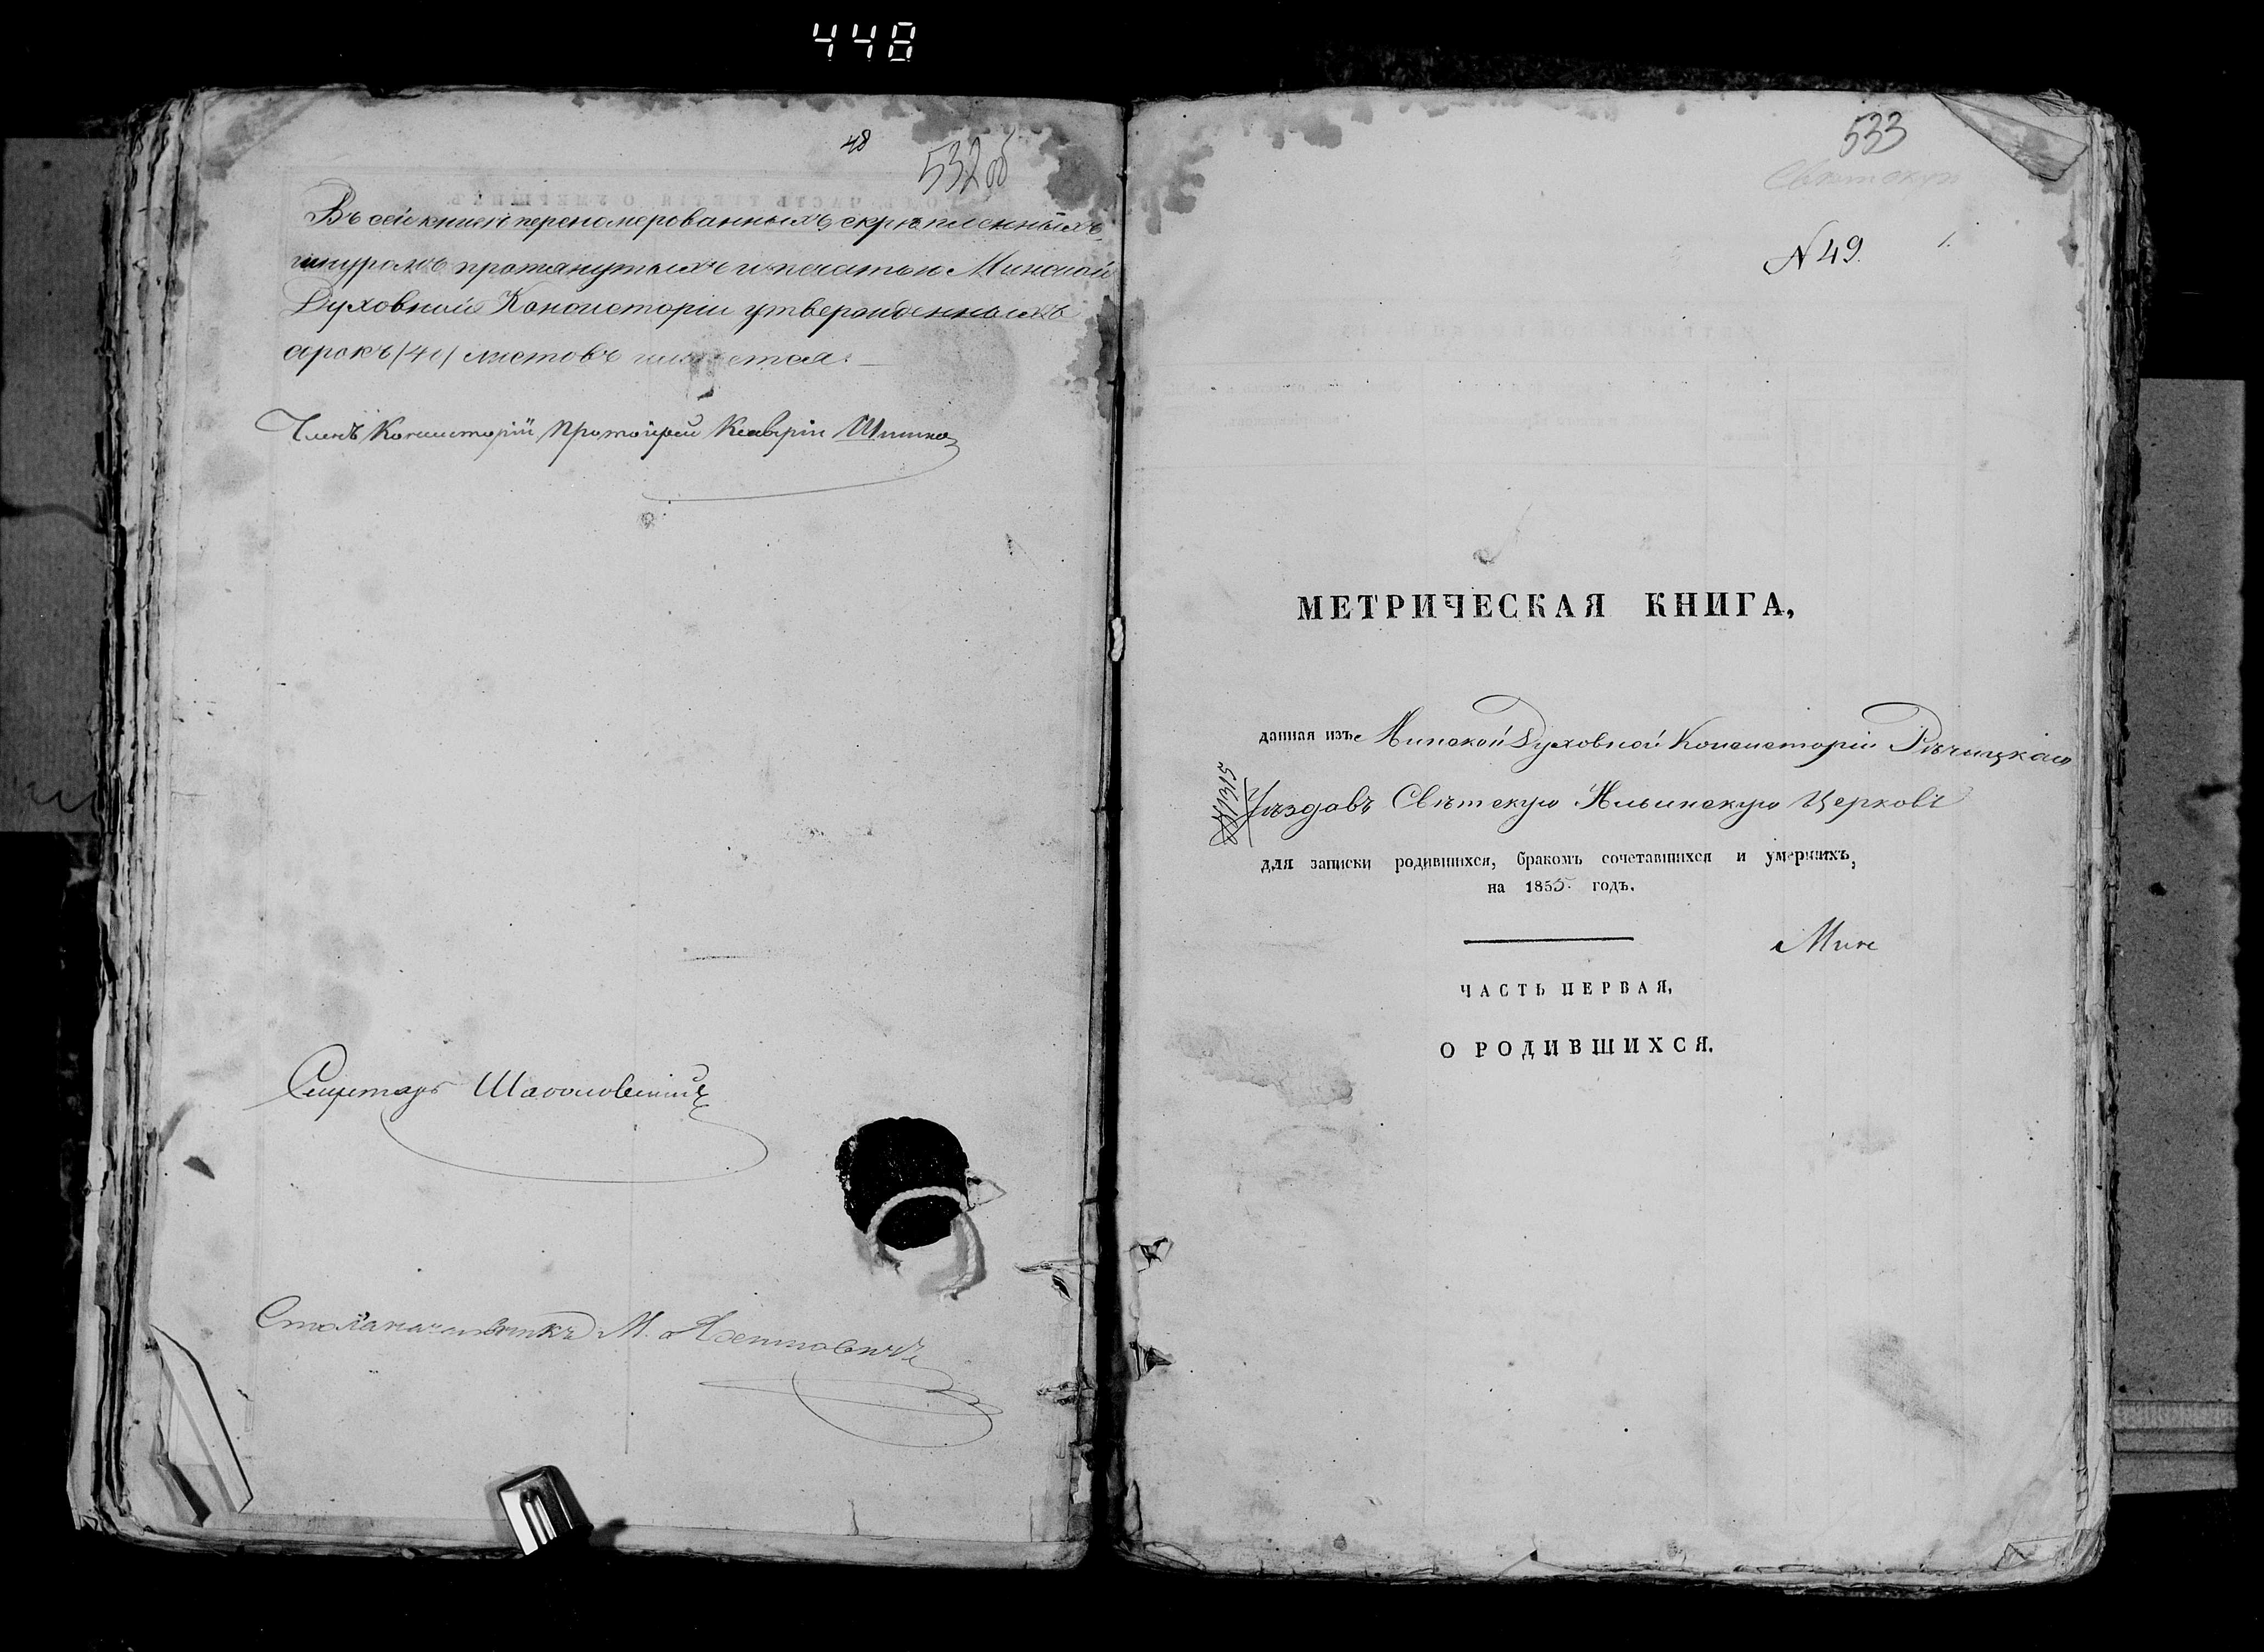 448
48
532 об
Въ сей книги перенумерованныхъ, скрѣпленныхъ,
шнуромъ протянутыхъ и печатью Минской
Духовной Консисторіи утвержденныхъ
сорокъ /40/ листовъ имѣется.
Членъ Консисторіи Протоіерей
Секретарь
Столоначальникъ М.
533
Свѣтскую
N 49.
1.
МЕТРИЧЕСКАЯ КНИГА,
данная изъ Минской Духовной Консисторіи Рѣчицкаго
Уѣзда въ Свѣтскую Ильинскую Церковь
для записки родившихся, бракомъ сочетавшихся и умершихъ,
на 1855 годъ.
Мин
ЧАСТЬ ПЕРВАЯ,
О РОДИВШИХСЯ.